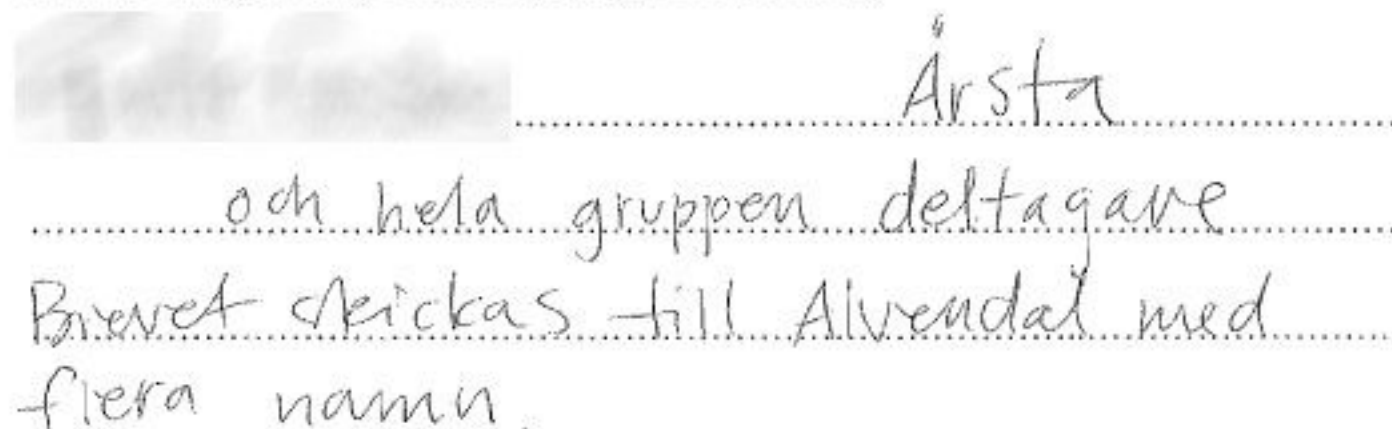 Årsta
och hela gruppen deltagare
Brevet skickas till Alvendal med
flera namn.